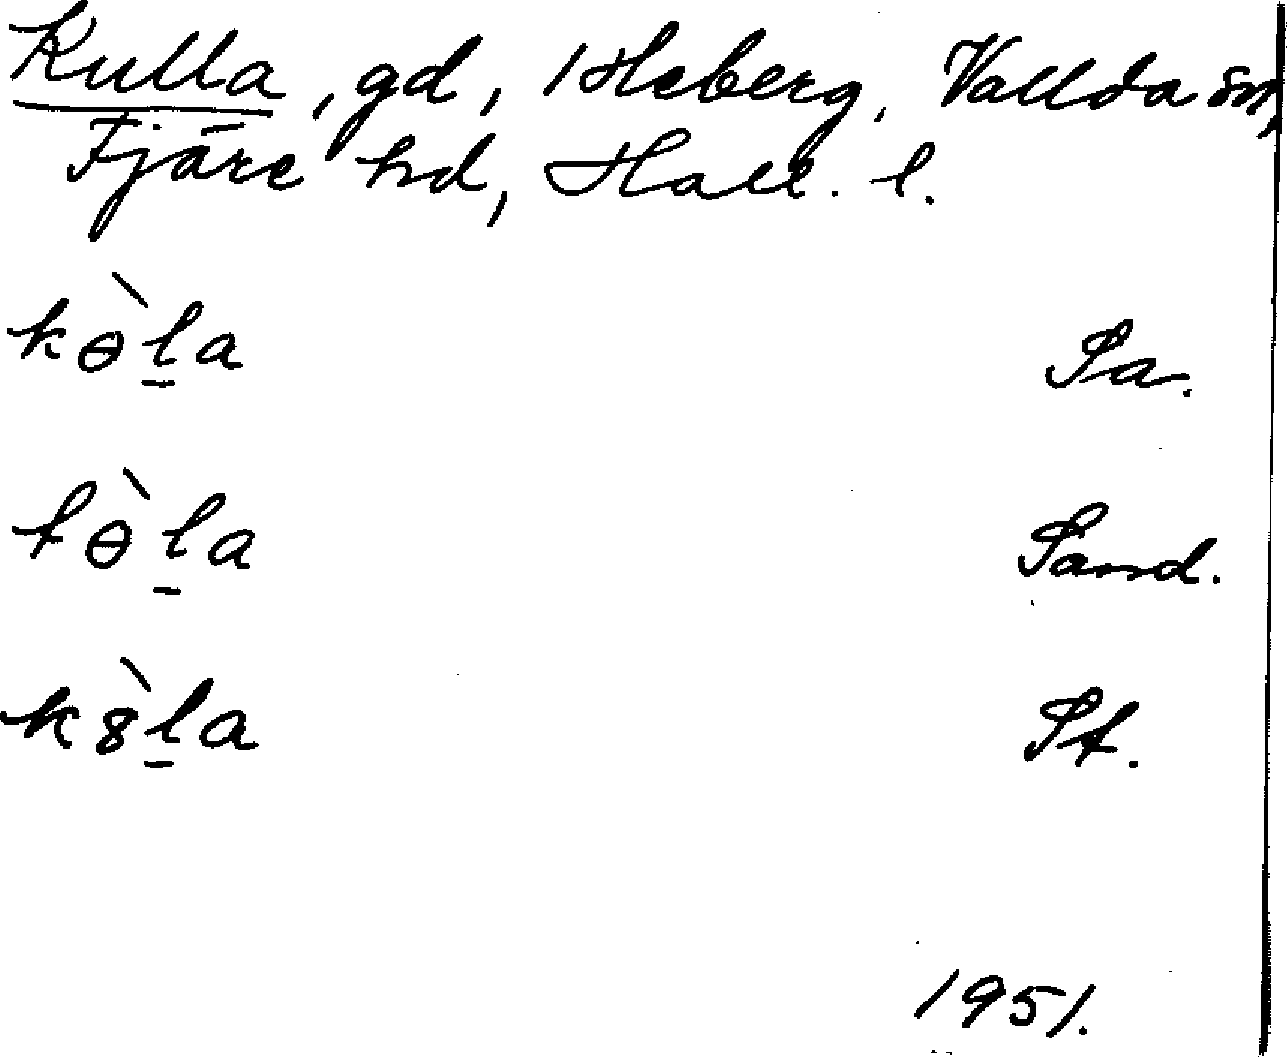 Kulla, gd, 1 Heberg, Vallda sn,
Fjäre hd, Hall. l.
kɵ̀l̠a Sa.
kɵ̀l̠a Sand.
k8̀l̠a St.
1951.